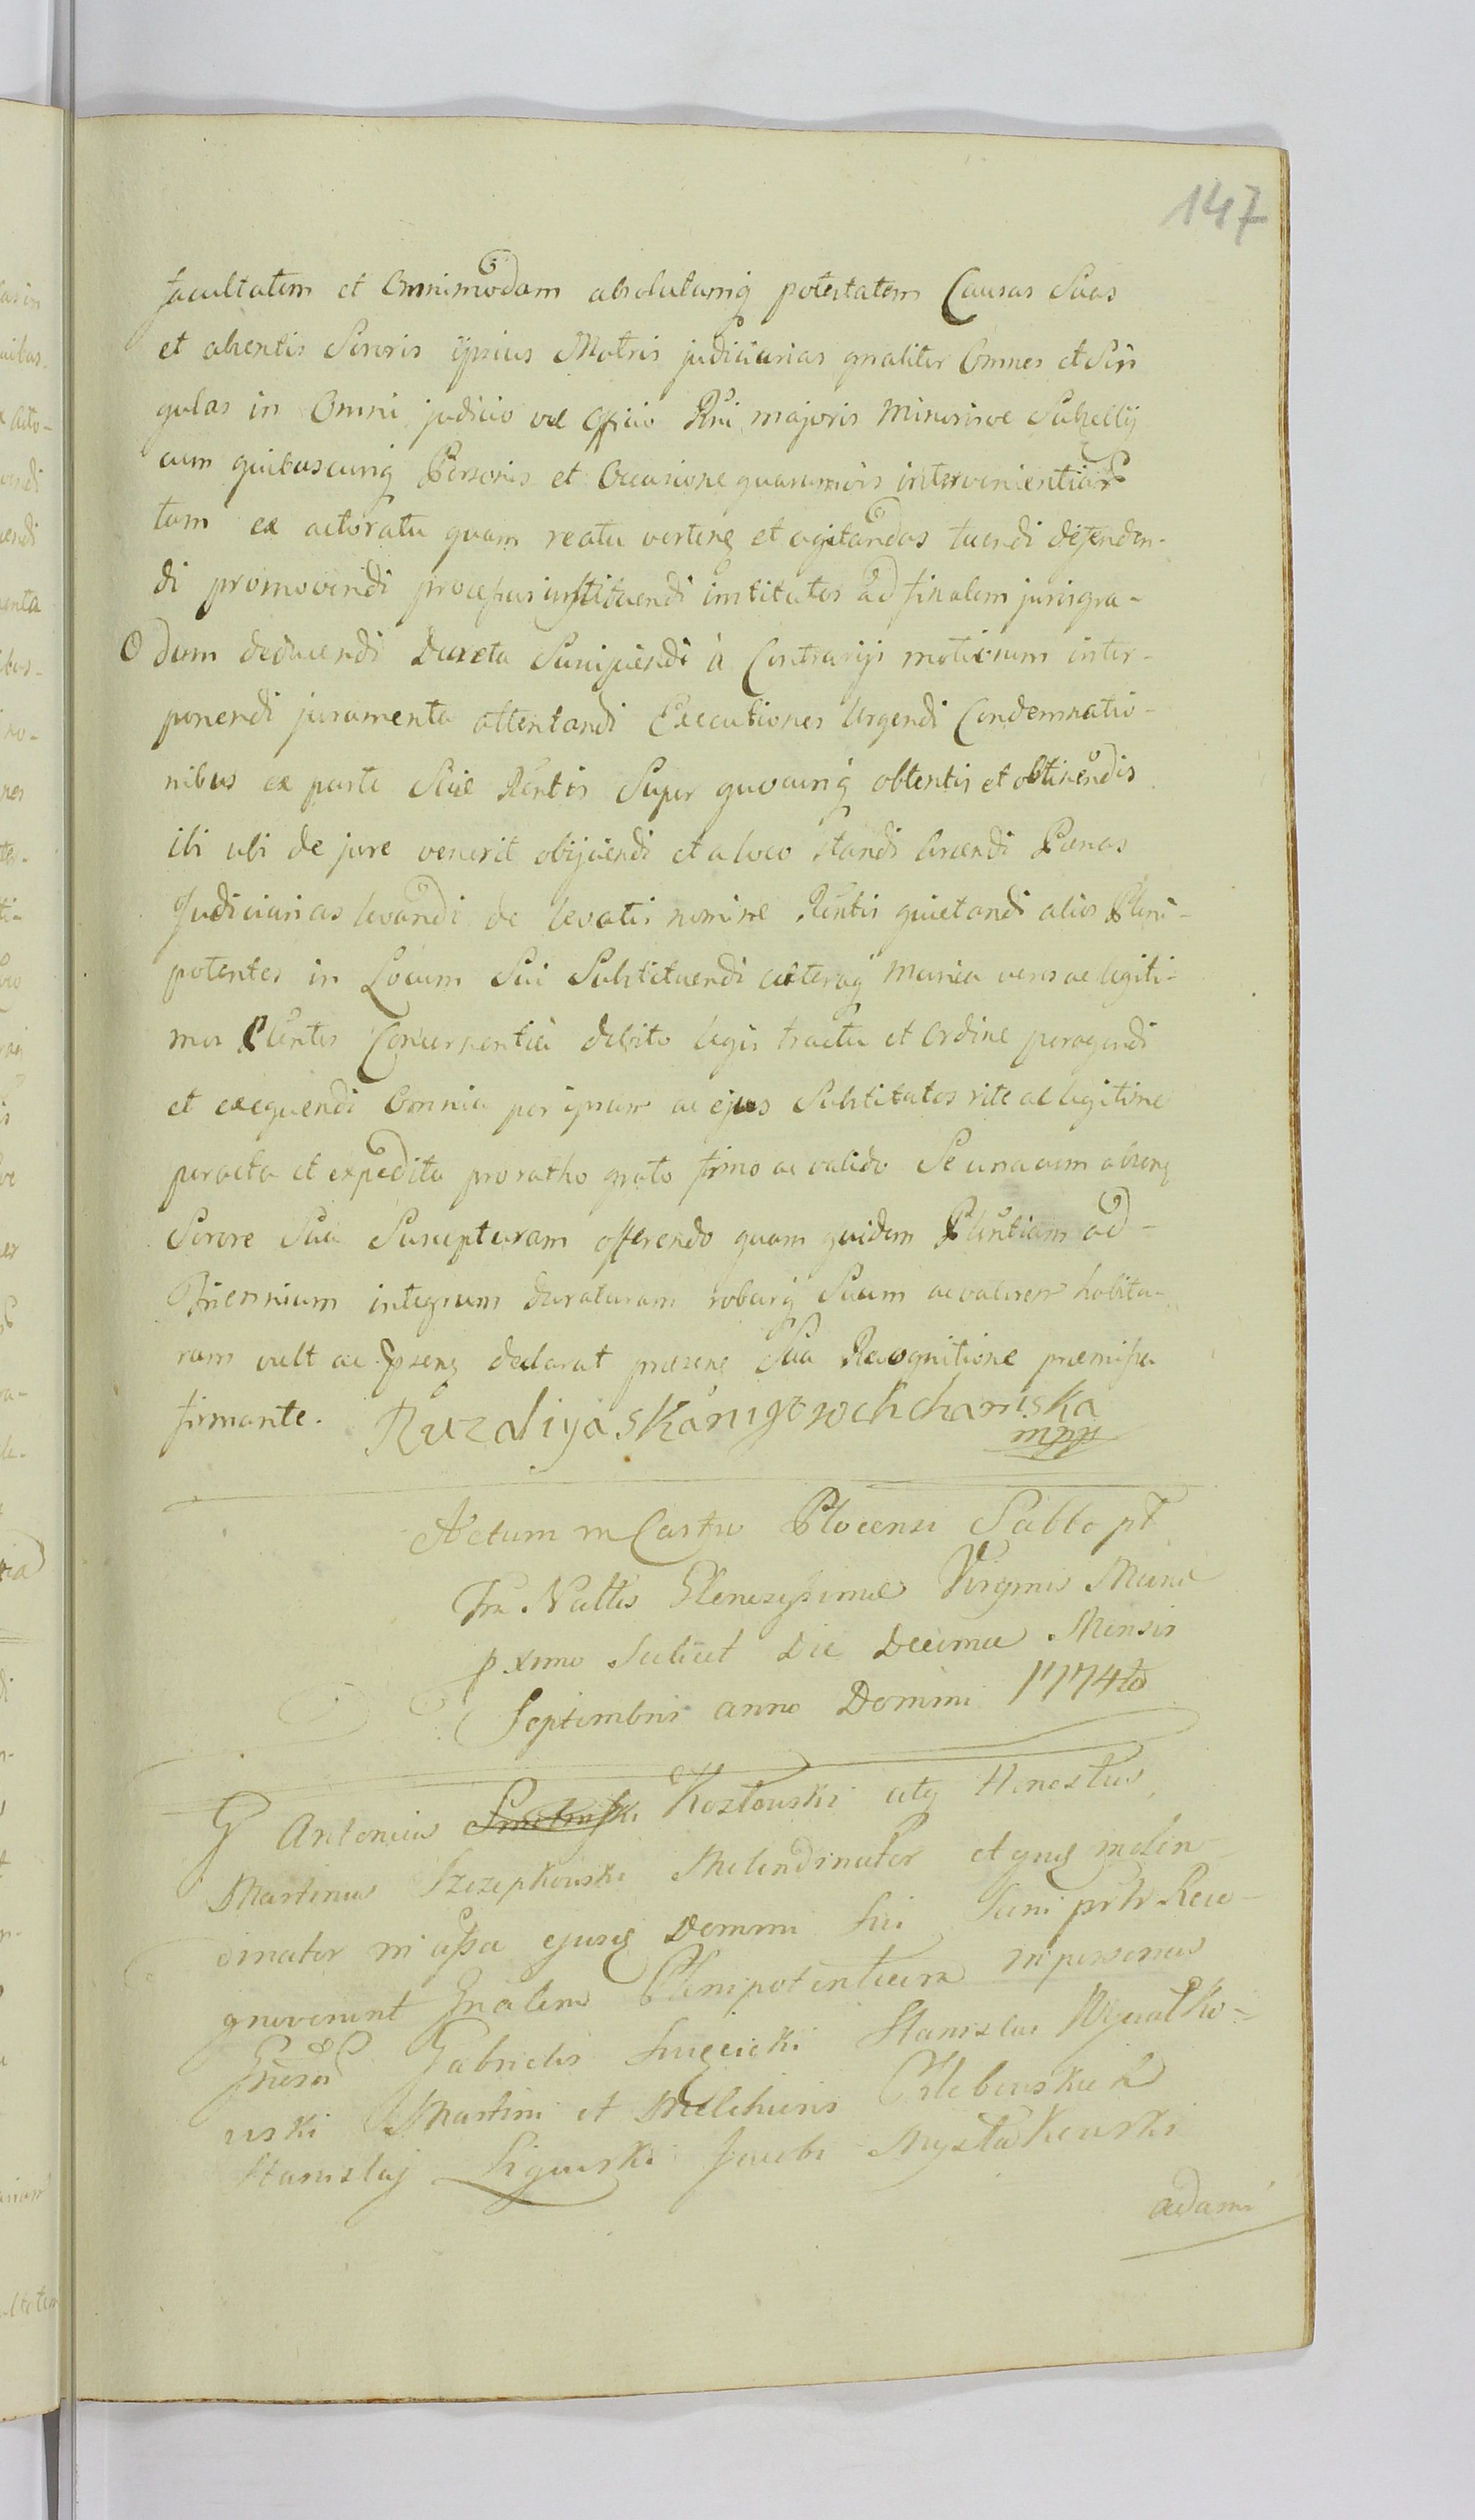 147
facultatem et Omnimodam absolutamq potestatem Causas Suas
et absentis Sororis ipsius Matris judiciarias gnaliter Omnes et Sin
gulas in Omni judicio vel Officio Rni majoris Minorisve Subsellij
cum quibuscunq Personis et Occasione quarumvis intervenientiar
tam ex actoratu quam reatu verteng et agitandas tuendi defenden-
di promovendi processus instituendi institutos ad finalem jurisgra-
dum deducendi Decreta Suscipiendi à Contrarijs motionum inter-
ponendi juramenta attentandi Executiones Urgendi Condemnatio-
nibus ex parte Rentis Super quocunq obtentis et obtinendis
ibi ubi de jure venerit obijciendi et a loco standi Arcendi Pœnas
Judiciarias levandi de levatis nomine Rentis quietandi alios Pleni-
potentes in Locum Sui Substituendi cæteraq Munia veri ac legiti-
mi Plentis Concernentia debito legis tractu et Ordine peragendi
et exequendi Omnia per ipsum ac ejus Substitutos rite ac legitime
peracta et expedita pro ratho grato firmo ac valido Se una cum abseng
Sorore Sua Suscepturam offerendo quam quidem Plentiam ad
Triennium integrum duraturam roburq Suum ac valorem habitu-
ram vult ac declarat præsenq Sua Recognitione præmissa
firmante.
mpp
Actum in Castro Plocensi Sabbo pt
Fm Nattis Virginis Mariæ
pximo Scilicet Die Decima Mensis
Septembris anno Domini 1774to
G Antonius Kozłowski atq Honestus
Martinus Szczepkowski Molendinator
dinator in Domini Sui Reco-
gnoverunt Gnalem Plenipotentiam in personas
Gnesor Gabrielis Stanislai
wski Martini et Melchioris Chlebowskich
Stanislaj Ligowski Jacobi Myslakowski
adami